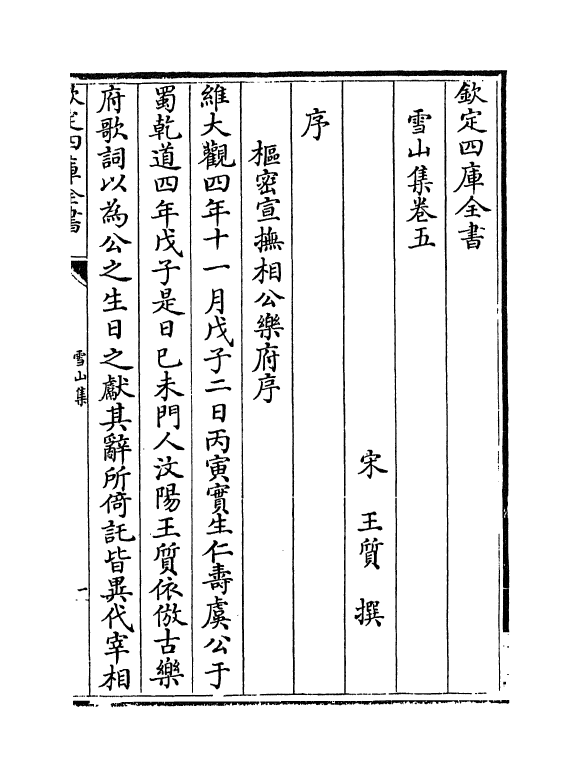 欽定四庫全書
雪山集卷五
宋　王質　撰
序
樞密宣撫相公樂府序
維大觀四年十一月戊子二日丙寅實生仁壽虞公于
蜀乾道四年戊子是日巳未門人汶陽王質依倣古樂
府歌詞以為公之生日之獻其辭所倚託皆異代宰相
欽定四庫全書
雪山集
一